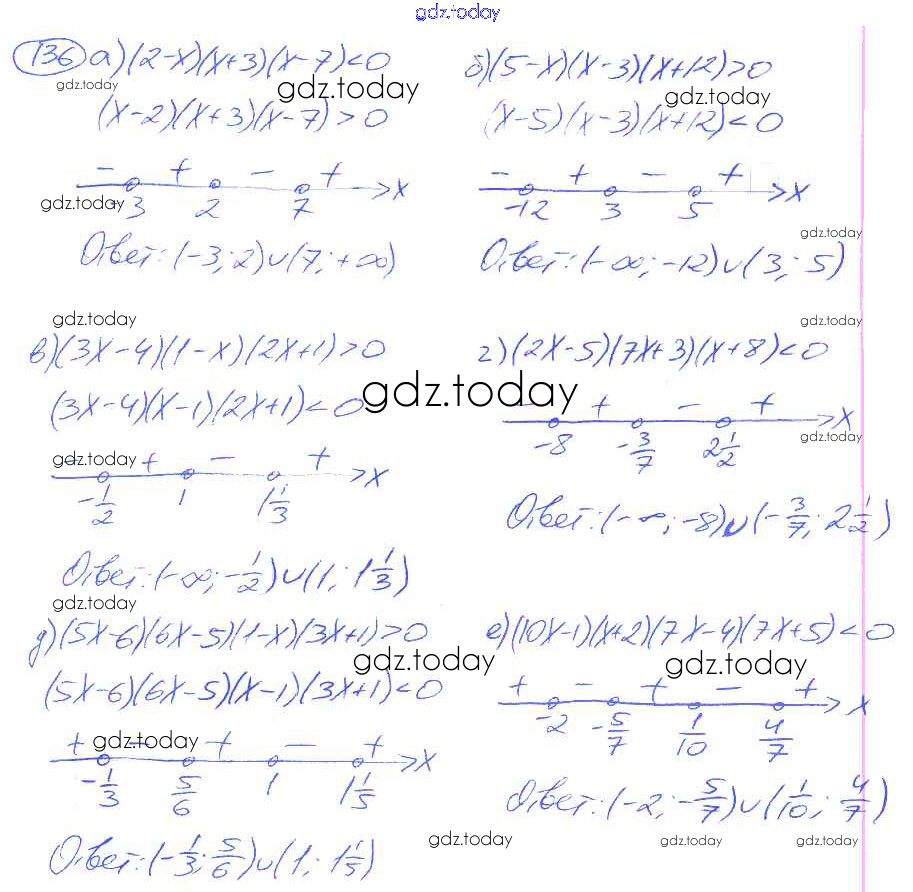 gdz.today
136 а) (2-x)(x+3)(x-7)<0
gdz.today
gdz.today
(x-2)(x+3)(x-7)>0
- + - +
-3 2 7 x
gdz.today
Ответ: (-3; 2)∪(7; +∞)
б) (5-x)(x-3)(x+12)>0
gdz.today
(x-5)(x-3)(x+12)<0
- + - +
-12 3 5 x
gdz.today
Ответ: (-∞; -12)∪(3; 5)
gdz.today
в) (3x-4)(1-x)(2x+1)>0
(3x-4)(x-1)(2x+1)<0
gdz.today
gdz.today
- + - +
-1/2 1 1 1/3 x
Ответ: (-∞; -1/2)∪(1; 1 1/3)
gdz.today
gdz.today
г) (2x-5)(7x+3)(x+8)<0
- + - +
-8 -3/7 2 1/2 x
gdz.today
Ответ: (-∞; -8)∪(-3/7; 2 1/2)
д) (5x-6)(6x-5)(1-x)(3x+1)>0
gdz.today
(5x-6)(6x-5)(x-1)(3x+1)<0
+ - + - +
gdz.today
-1/3 5/6 1 1 1/5 x
Ответ: (-1/3; 5/6)∪(1; 1 1/5)
е) (10x-1)(x+2)(7x-4)(7x+5)<0
gdz.today
+ - + - +
-2 -5/7 1/10 4/7 x
Ответ: (-2; -5/7)∪(1/10; 4/7)
gdz.today
gdz.today
gdz.today